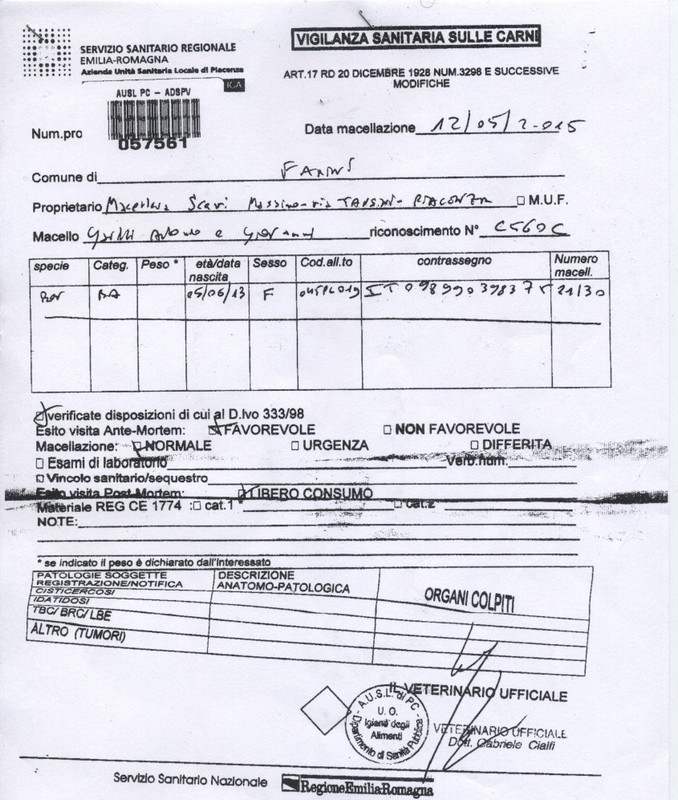 SERVIZIO SANITARIO REGIONALE
EMILIA-ROMAGNA
Azienda Unità Sanitaria Locale di Piacenza
VIGILANZA SANITARIA SULLE CARNI
ART.17 RD 20 DICEMBRE 1928 NUM.3298 E SUCCESSIVE
MODIFICHE
AUSL PC - ADSPV
Num.pro
057561
Data macellazione 12/05/2015
Comune di
Proprietario Macelleria Massimo via PIACENZA M.U.F.
Macello e Giovanni riconoscimento N° C560C
specie Categ. Peso * età/data nascita Sesso Cod.all.to contrassegno Numero macell.
Bov BA 05/06/13 F 045PC019 21/30
verificate disposizioni di cui al D.lvo 333/98
Esito visita Ante-Mortem: FAVOREVOLE NON FAVOREVOLE
Macellazione: NORMALE URGENZA DIFFERITA
Esami di laboratorio Verb.num.
Vincolo sanitario/sequestro
Esito visita Post-Mortem: LIBERO CONSUMO
Materiale REG CE 1774 : cat.1 * cat.2
NOTE:
* se indicato il peso è dichiarato dall'interessato
PATOLOGIE SOGGETTE REGISTRAZIONE/NOTIFICA DESCRIZIONE ANATOMO-PATOLOGICA ORGANI COLPITI
CISTICERCOSI
IDATIDOSI
TBC/ BRC/ LBE
ALTRO (TUMORI)
IL VETERINARIO UFFICIALE
A.U.S.L. di PC - Dipartimento di Sanità Pubblica
U. O.
Igiene degli
Alimenti
VETERINARIO UFFICIALE
Dott. Gabriele Cialfi
Servizio Sanitario Nazionale
RegioneEmilia-Romagna